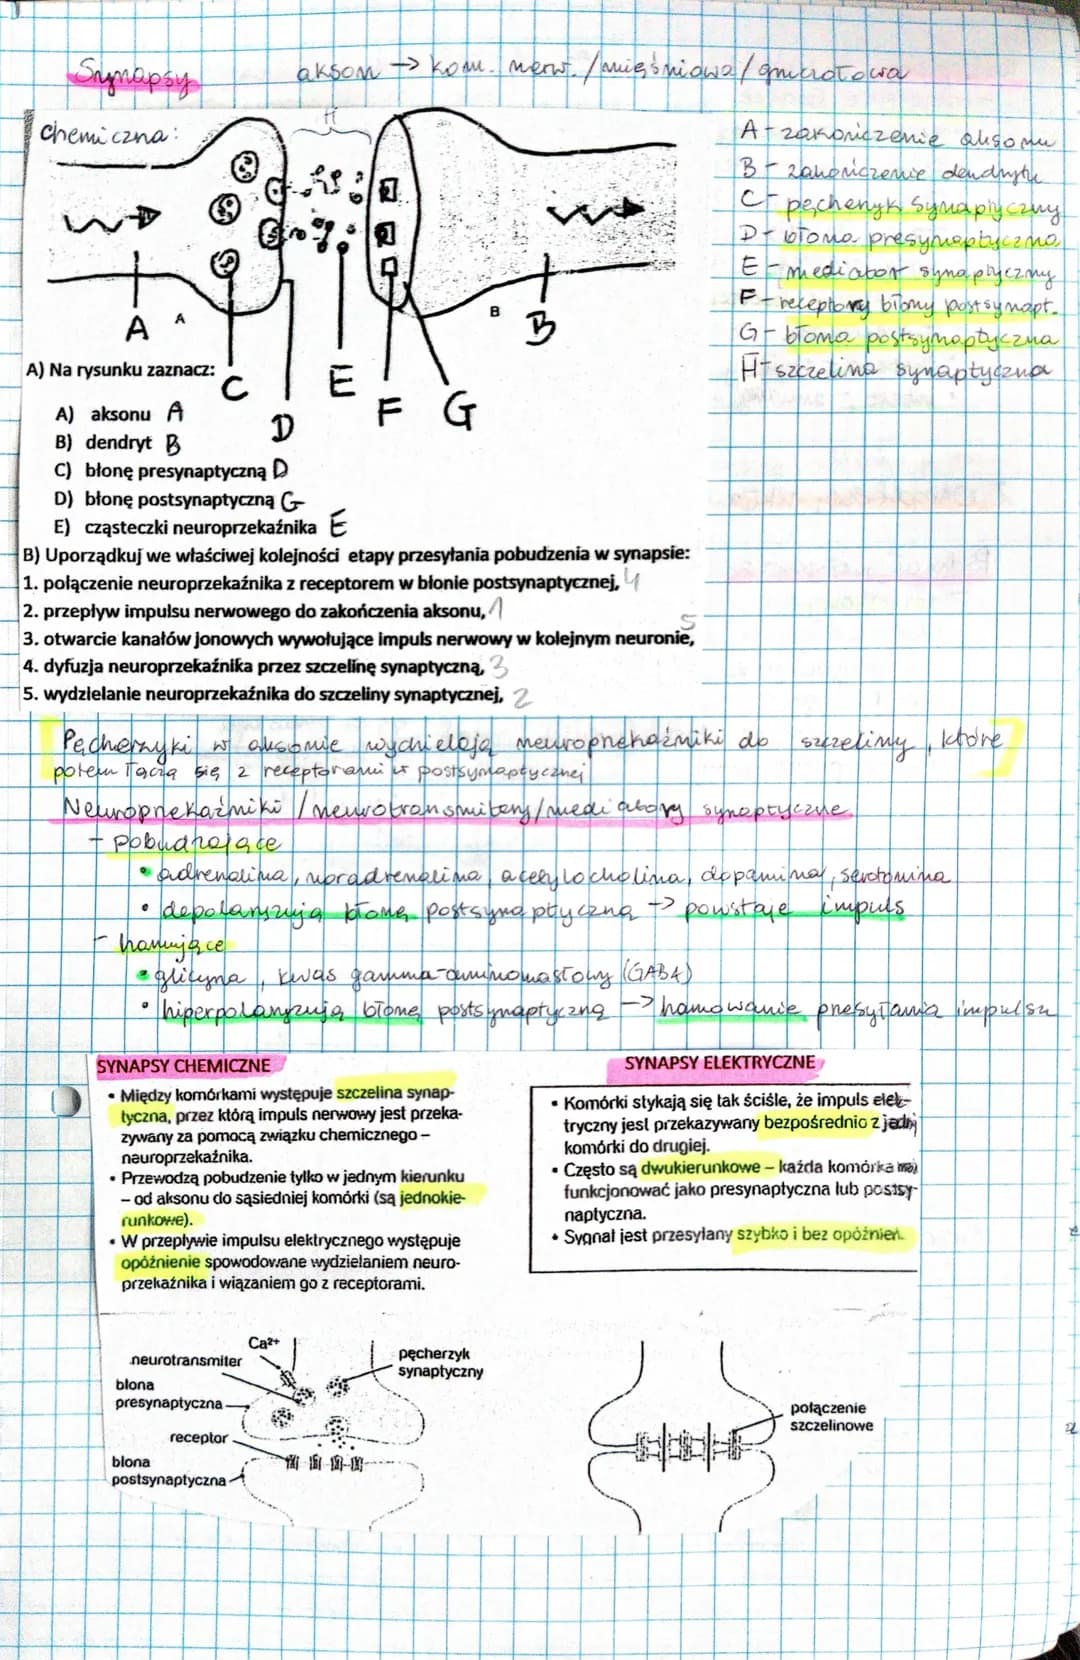 Synapsy
akson → kom. nerw. / mięśniowa / gruczołowa
chemiczna:
H
A - zakończenie aksonu
B - zakończenie dendrytu
C - pęcherzyk synaptyczny
D - błona presynaptyczna
E - mediator synaptyczny
F - receptory błony postsynapt.
G - błona postsynaptyczna
H - szczelina synaptyczna
A A B B
C D E F G
A) Na rysunku zaznacz:
A) aksonu A
B) dendryt B
C) błonę presynaptyczną D
D) błonę postsynaptyczną G
E) cząsteczki neuroprzekaźnika E
B) Uporządkuj we właściwej kolejności etapy przesyłania pobudzenia w synapsie:
1. połączenie neuroprzekaźnika z receptorem w błonie postsynaptycznej, 4
2. przepływ impulsu nerwowego do zakończenia aksonu, 1
3. otwarcie kanałów jonowych wywołujące impuls nerwowy w kolejnym neuronie, 5
4. dyfuzja neuroprzekaźnika przez szczelinę synaptyczną, 3
5. wydzielanie neuroprzekaźnika do szczeliny synaptycznej, 2
Pęcherzyki w aksonie wydzielają neuroprzekaźniki do szczeliny, które
potem łączą się z receptorami w postsynaptycznej
Neuroprzekaźniki / neurotransmitery / mediatory synaptyczne
- pobudzające
• adrenalina, noradrenalina, acetylocholina, dopamina, serotonina
• depolaryzują błonę postsynaptyczną → powstaje impuls
- hamujące
• glicyna, kwas gamma-aminomasłowy (GABA)
• hiperpolaryzują błonę postsynaptyczną → hamowanie przesyłania impulsu
SYNAPSY CHEMICZNE
• Między komórkami występuje szczelina synap-
tyczna, przez którą impuls nerwowy jest przeka-
zywany za pomocą związku chemicznego –
neuroprzekaźnika.
• Przewodzą pobudzenie tylko w jednym kierunku
– od aksonu do sąsiedniej komórki (są jednokie-
runkowe).
• W przepływie impulsu elektrycznego występuje
opóźnienie spowodowane wydzielaniem neuro-
przekaźnika i wiązaniem go z receptorami.
SYNAPSY ELEKTRYCZNE
• Komórki stykają się tak ściśle, że impuls elek-
tryczny jest przekazywany bezpośrednio z jednej
komórki do drugiej.
• Często są dwukierunkowe – każda komórka może
funkcjonować jako presynaptyczna lub postsy-
naptyczna.
• Sygnał jest przesyłany szybko i bez opóźnień.
Ca²⁺
neurotransmiter
pęcherzyk
synaptyczny
błona
presynaptyczna
receptor
błona
postsynaptyczna
połączenie
szczelinowe